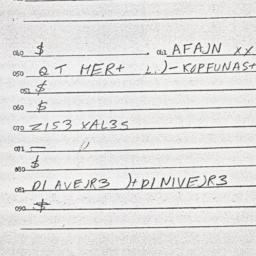 040 $ 043 AFAJN XX
050 Q T MER+ L.)-KOPFUNAS+
052 $
060 $
070 ZIS3 XAL3S
071 —
080 $
082 DI AVEJR3 )+DINIVEJR3
090 $